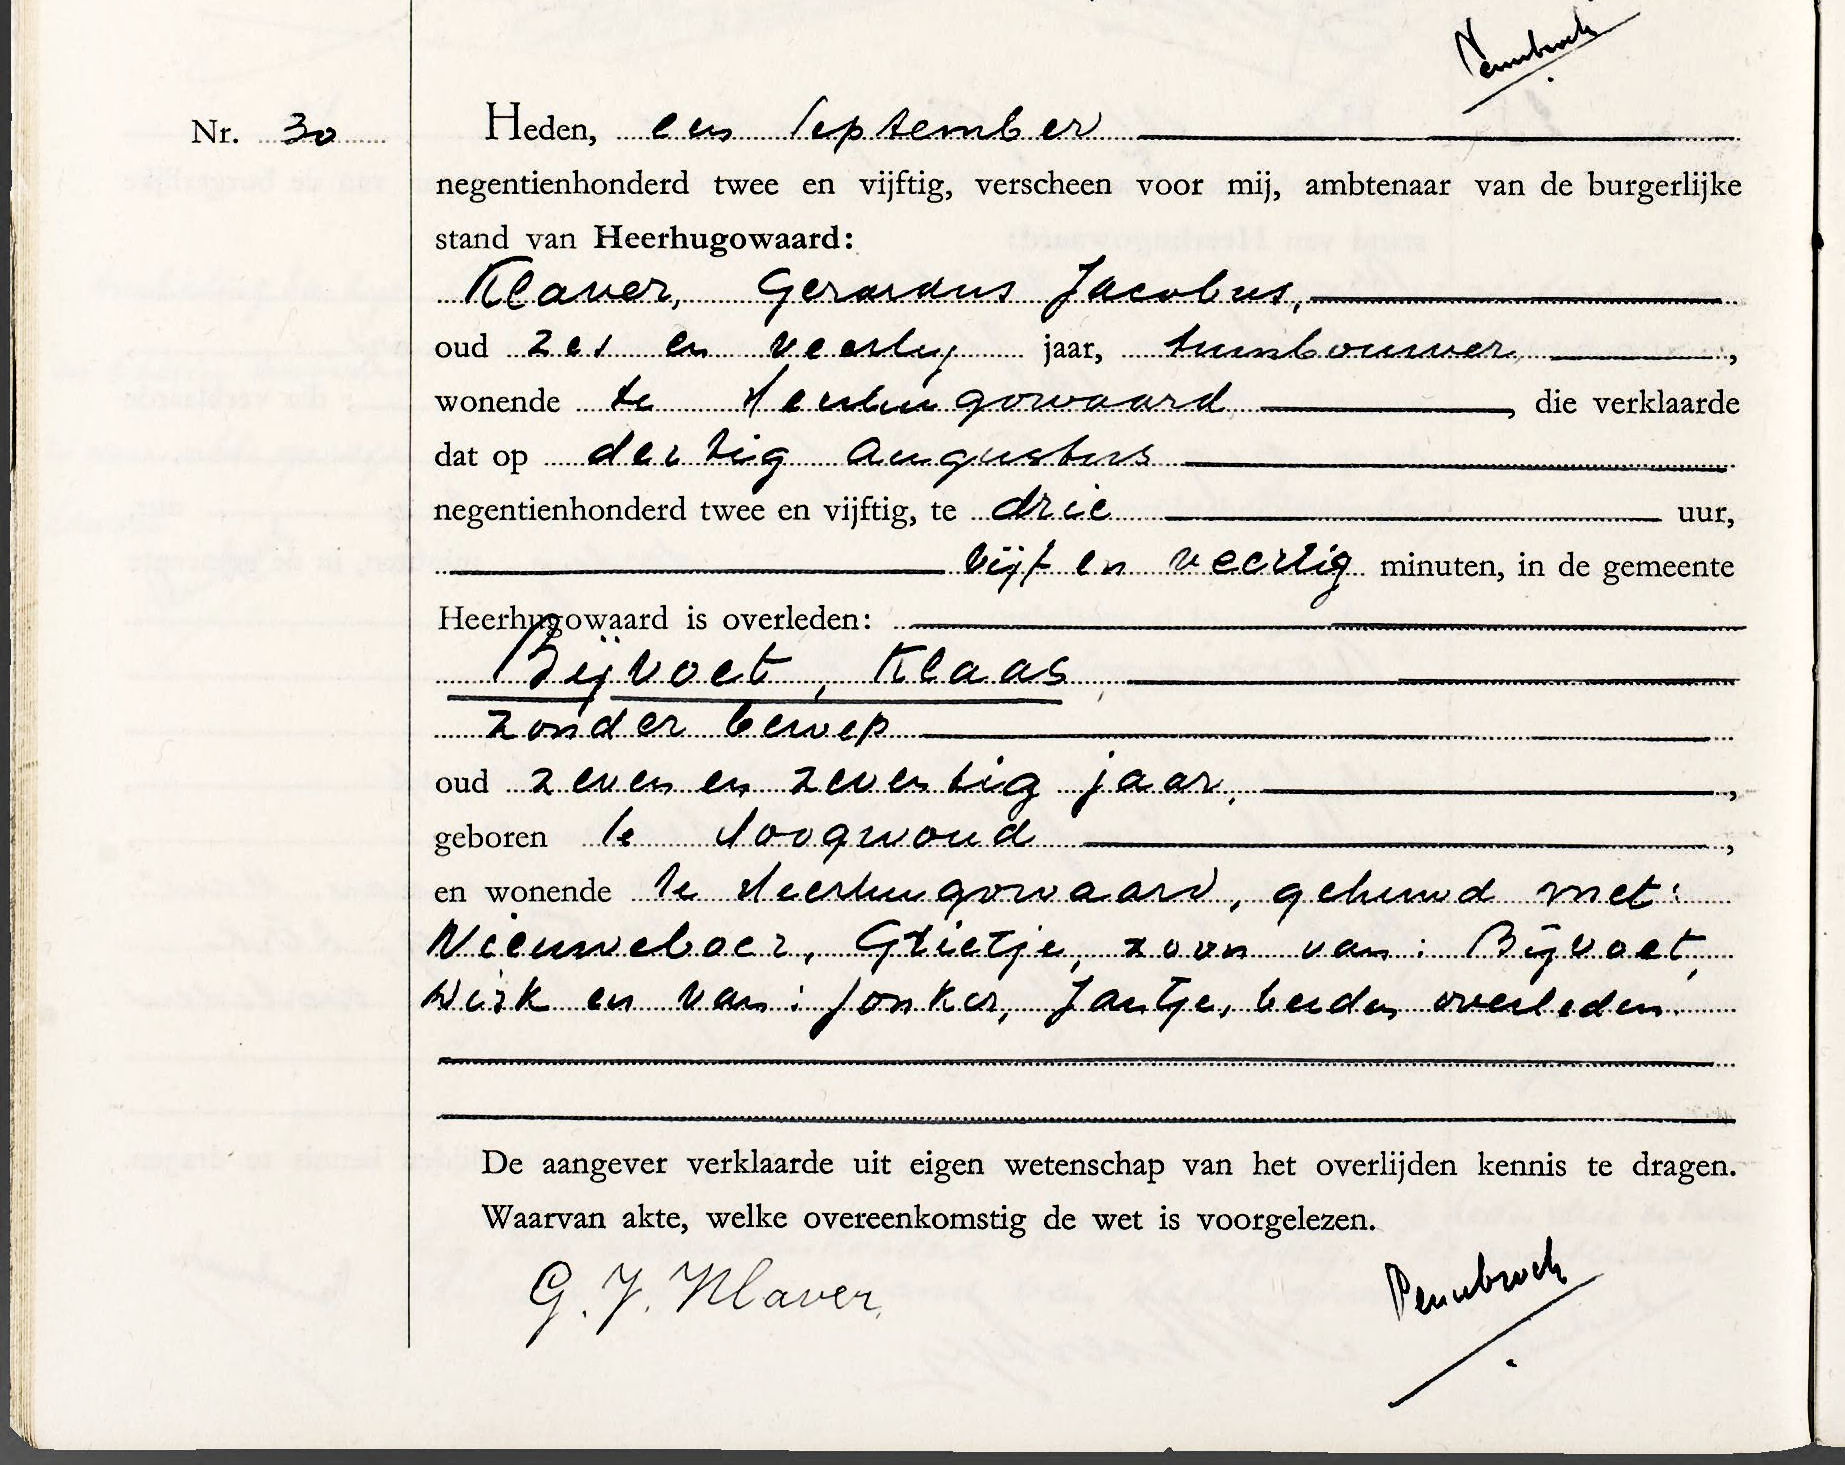 Pennbroek
Nr. 30
Heden, een September
negentienhonderd twee en vijftig, verscheen voor mij, ambtenaar van de burgerlijke
stand van Heerhugowaard:
Klaver, Gerardus Jacobus,
oud zes en veertig jaar, tuinbouwer,
wonende te Heerhugowaard, die verklaarde
dat op dertig Augustus
negentienhonderd twee en vijftig, te drie uur,
vijf en veertig minuten, in de gemeente
Heerhugowaard is overleden:
Bijvoet, Klaas
zonder beroep
oud zeven en zeventig jaar,
geboren te Hoogwoud,
en wonende te Heerhugowaard, gehuwd met:
Nieuweboer, Grietje, zoon van: Bijvoet,
Dirk en van: Jonker, Jantje, beiden overleden.
De aangever verklaarde uit eigen wetenschap van het overlijden kennis te dragen.
Waarvan akte, welke overeenkomstig de wet is voorgelezen.
G. J. Klaver.
Pennbroek